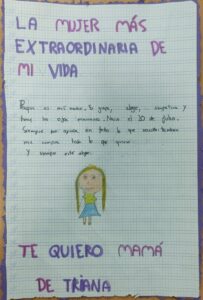 LA MUJER MÁS
EXTRAORDINARIA DE
MI VIDA
es mi madre. Es guapa, alegre, simpática y
tiene los ojos marrones. Nació el 20 de julio.
Siempre me ayuda en todo lo que
me compra todo lo que quiero
Y siempre está alegre.
TE QUIERO MAMÁ
DE TRIANA